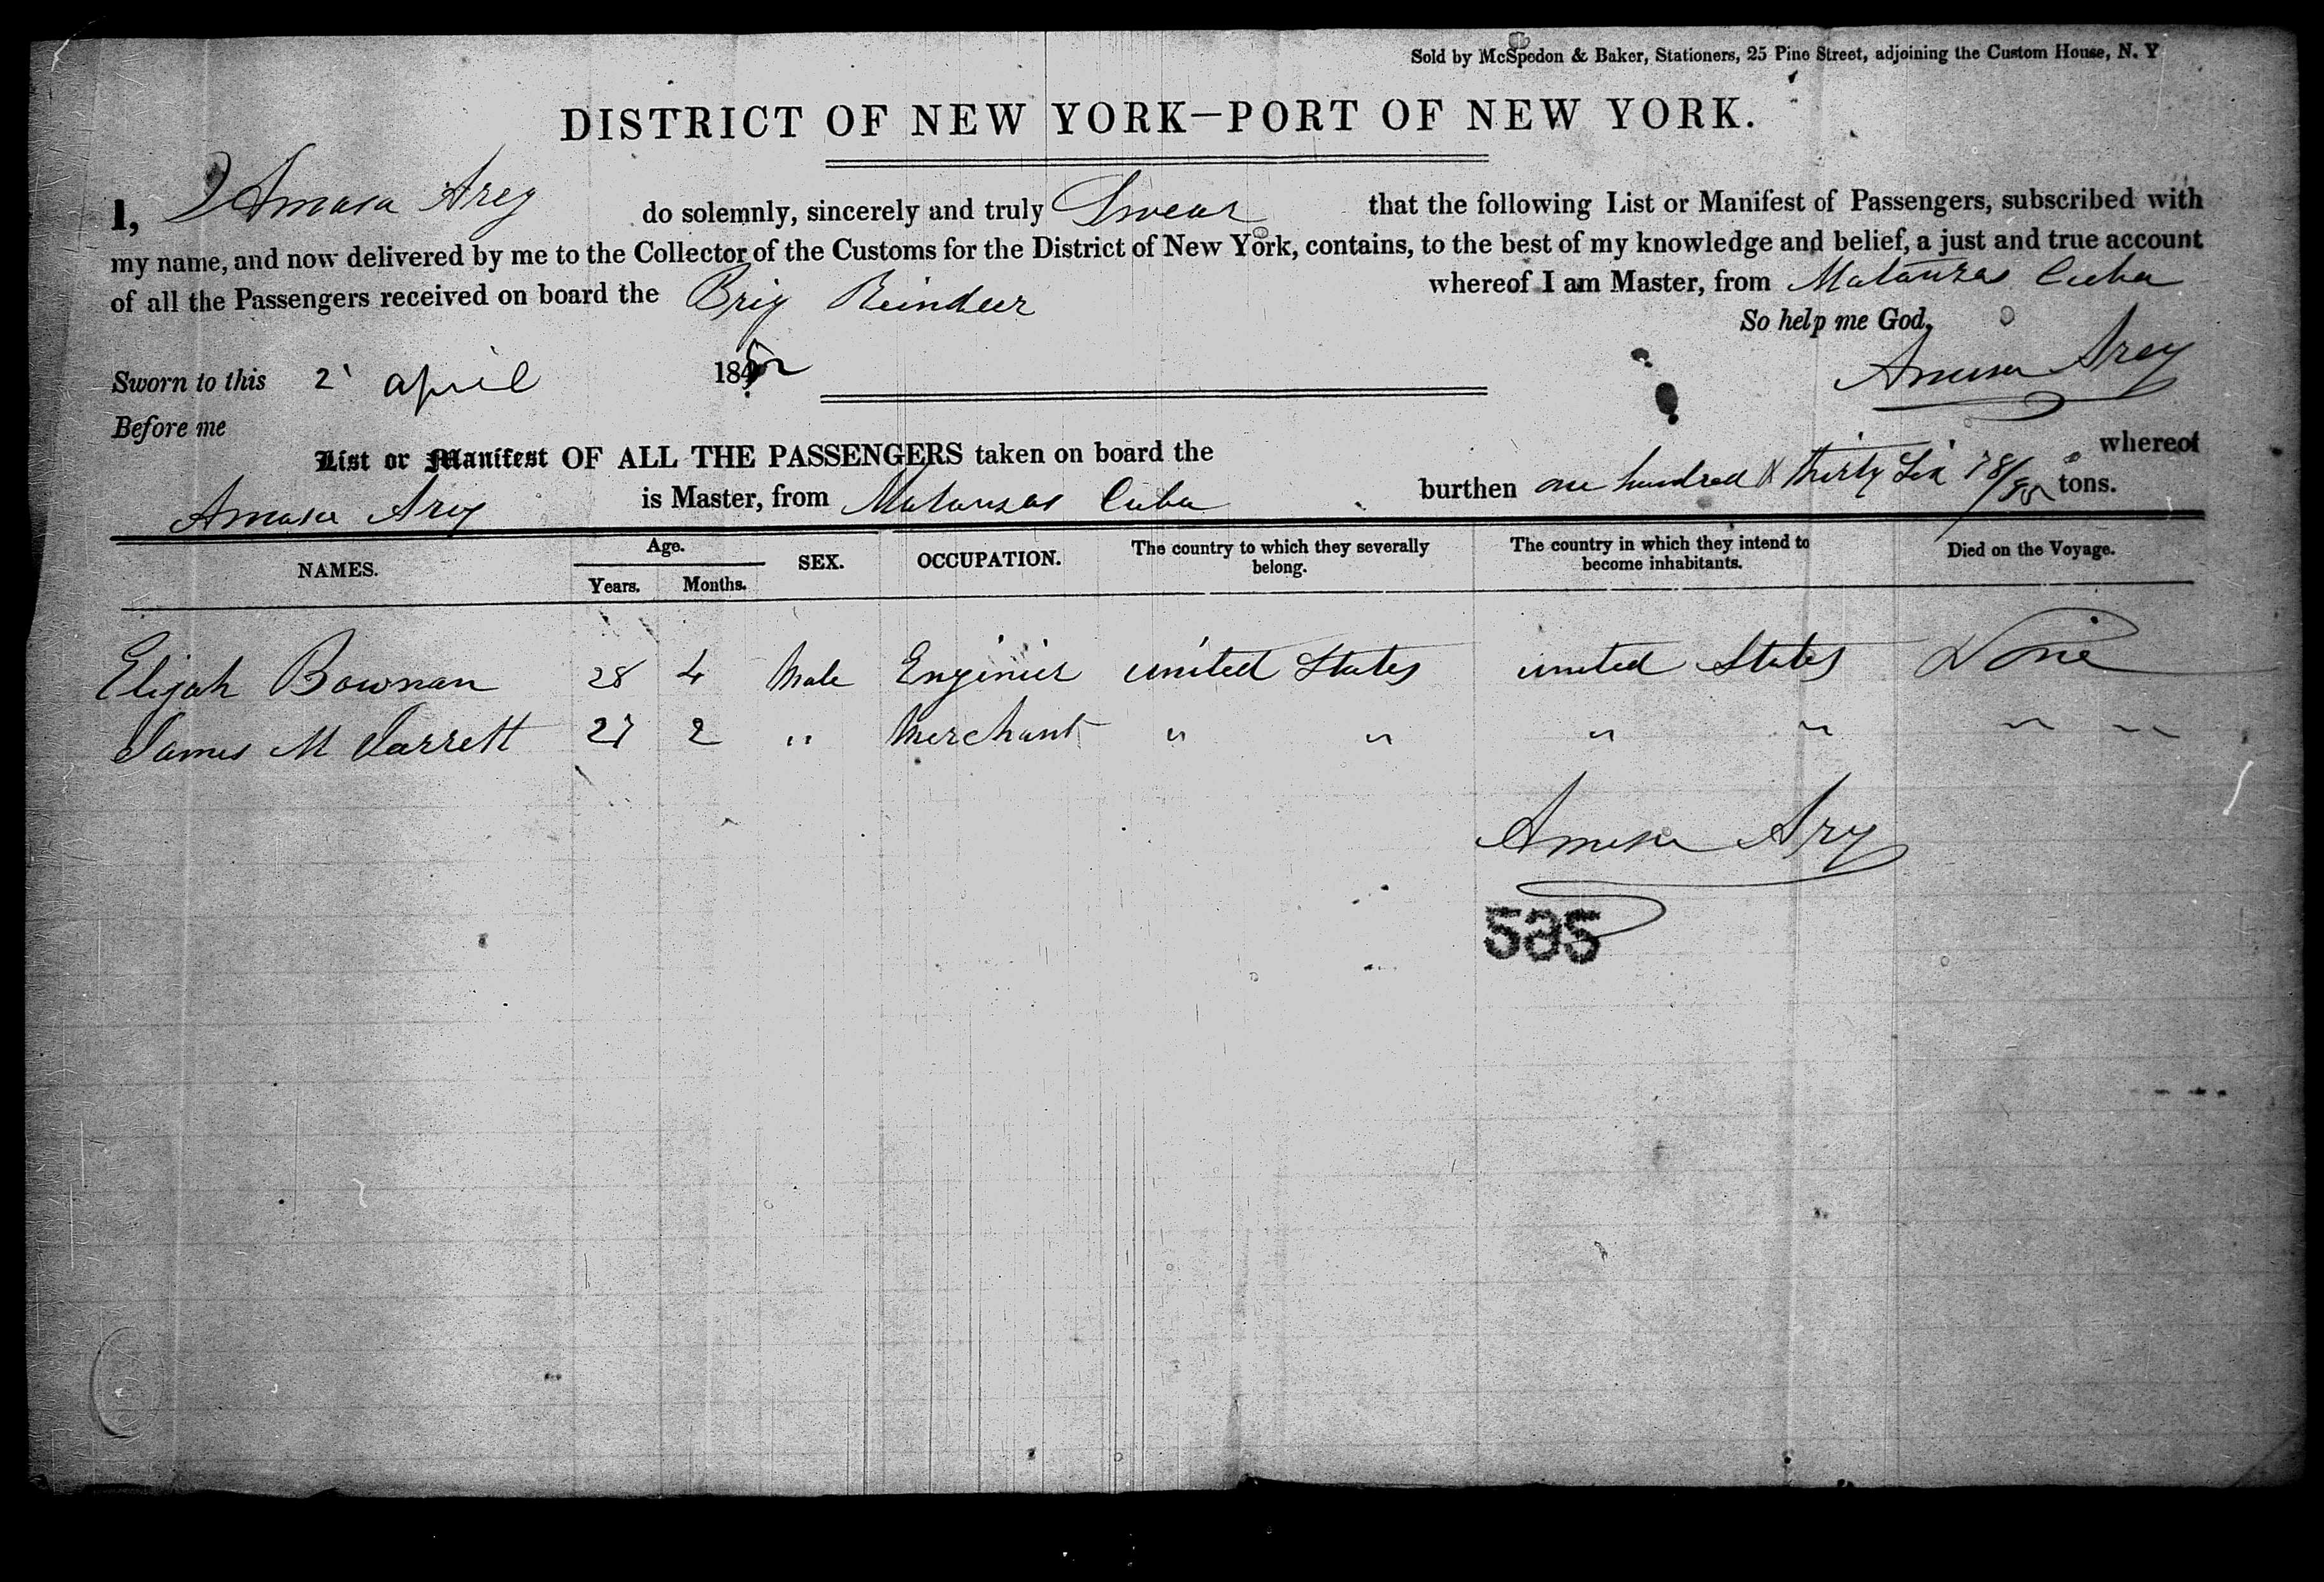 Sold by McSpedon & Baker, Stationers, 25 Pine Street, adjoining the Custom House, N. Y
DISTRICT OF NEW YORK—PORT OF NEW YORK.
I, Amasa Arey do solemnly, sincerely and truly Swear that the following List or Manifest of Passengers, subscribed with
my name, and now delivered by me to the Collector of the Customs for the District of New York, contains, to the best of my knowledge and belief, a just and true account
of all the Passengers received on board the Brig Reindeer whereof I am Master, from Matanzas Cuba
So help me God,
Sworn to this 2 april 1852 Amasa Arey
Before me
List or Manifest OF ALL THE PASSENGERS taken on board the whereof
Amasa Arey is Master, from Matanzas Cuba burthen one hundred & thirty Six 78/95 tons.
NAMES. Age. Years. Months. SEX. OCCUPATION. The country to which they severally belong. The country in which they intend to become inhabitants. Died on the Voyage.
Elijah Bowman 28 4 Male Enginier united States united States None
James M Jarrett 27 2 " Merchant " " " " " "
Amasa Ary
585